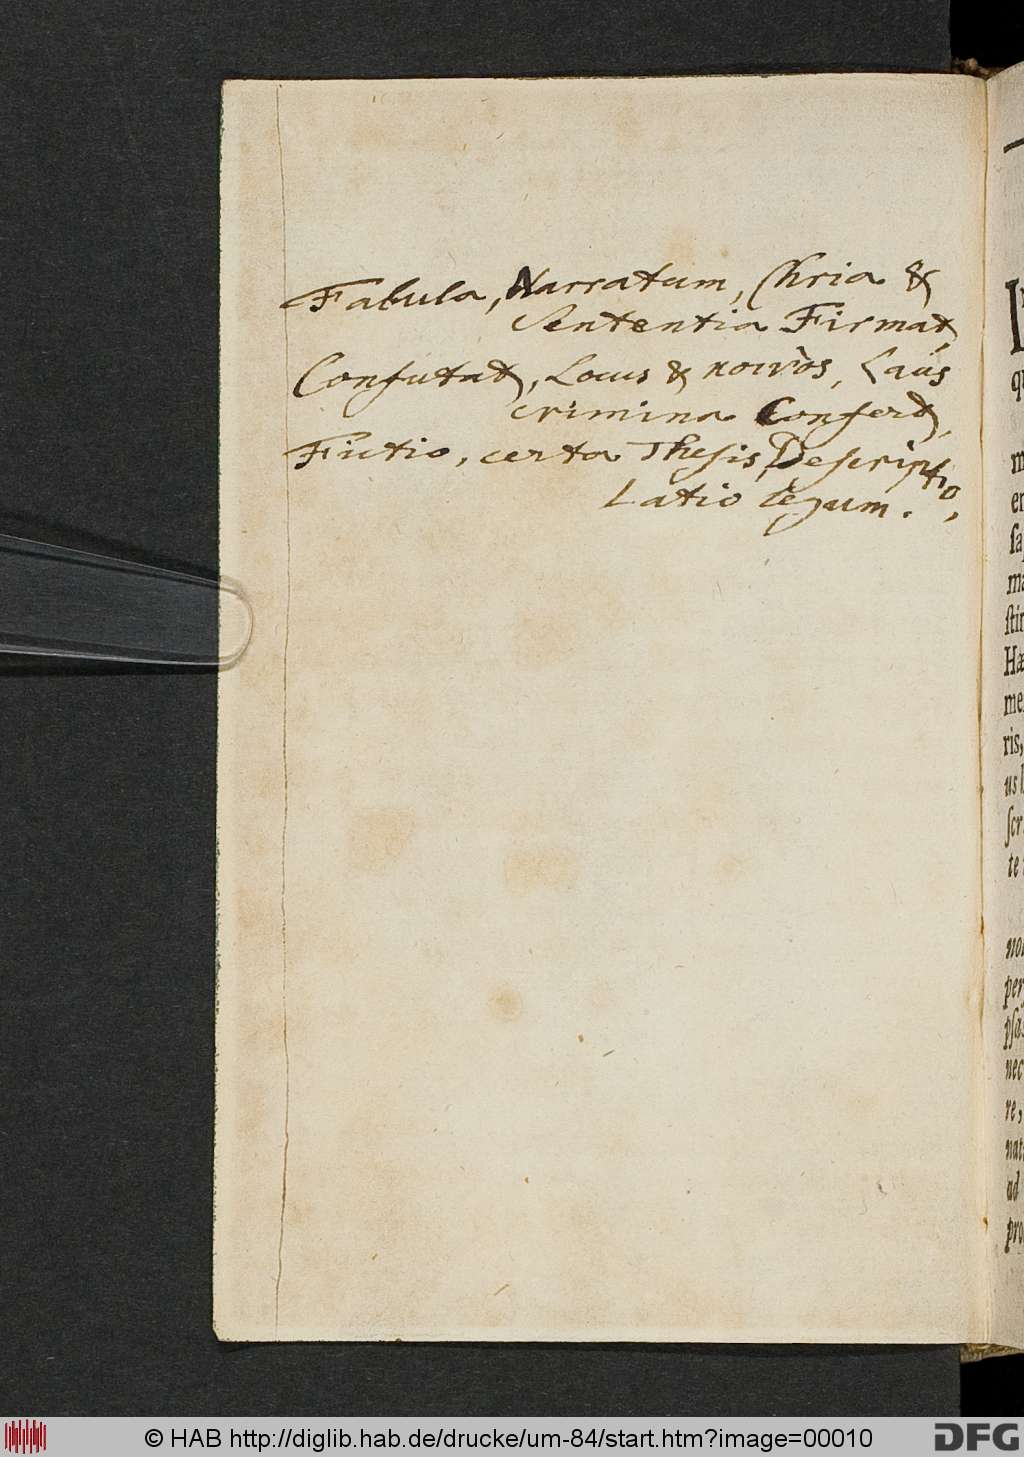 Fabula, Narratum, Chria &
Sententia Firmat,
Confutat, Locus & κοινὸς, Laus
crimina Confert,
Fictio, certa Thesis, Descriptio,
Latio legum.
qu
m
er
ma
Hæ
me
ris,
us
te
nec
re,
ad
© HAB http://diglib.hab.de/drucke/um-84/start.htm?image=00010
DFG